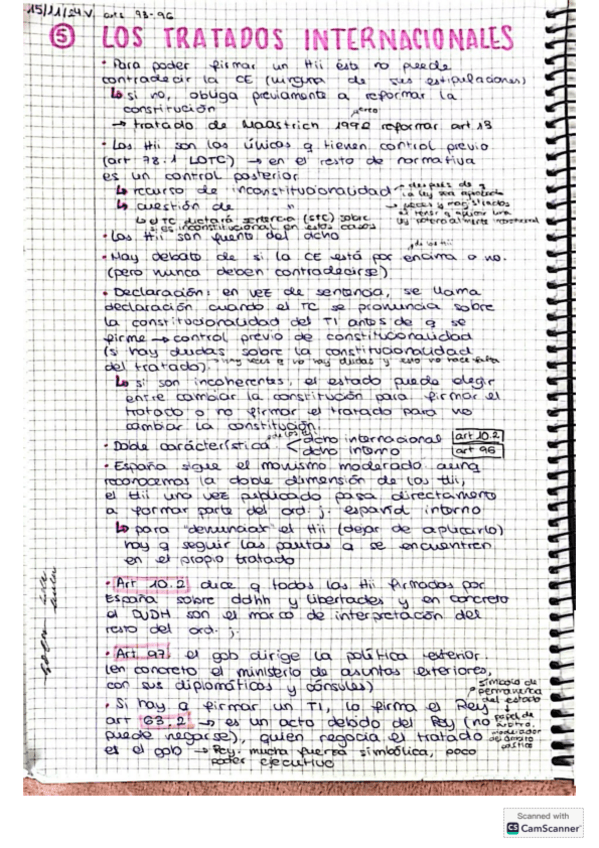 15/11/24 V. arts 93-96
⑤ LOS TRATADOS INTERNACIONALES
• Para poder firmar un ttii éste no puede
contradecir la CE (ninguna de sus estipulaciones)
↳ si no, obliga previamente a reformar la
constitución
→ tratado de Maastrich 1992 reformar art 13
• Los ttii son los únicos q tienen control previo
(art 78.1 LOTC) → en el resto de normativa
es un control posterior
↳ recurso de inconstitucionalidad → después de q la ley sea aprobada
↳ cuestión de " → jueces y magistrados al tener q aplicar una ley potencialmente
↳ el TC dictará sentencia (STC) sobre
si es inconstitucional en estos casos
• Los ttii son fuente del dcho
• Hay debate de si la CE está por encima o no.
de los ttii
(pero nunca deben contradecirse)
• Declaración: en vez de sentencia, se llama
declaración cuando el TC se pronuncia sobre
la constitucionalidad del TI antes de q se
firme → control previo de constitucionalidad
(si hay dudas sobre la constitucionalidad
del tratado). → hay veces q no hay dudas y esto no hace falta
↳ si son incoherentes, el estado puede elegir
entre cambiar la constitución para firmar el
tratado o no firmar el tratado para no
cambiar la constitución.
de los ttii
• Doble carácterística < dcho internacional art 10.2
dcho interno art 96
• España sigue el monismo moderado aunq
reconocemos la doble dimensión de los ttii,
el ttii una vez publicado pasa directamente
a formar parte del ord. j. español interno
↳ para "denunciar" el ttii (dejar de aplicarlo)
hay q seguir las pautas q se encuentren
en el propio tratado
• Art 10.2 dice q todos los ttii firmados por
España sobre ddhh y libertades y en concreto
la DUDH son el marco de interpretación del
resto del ord. j.
• Art 97 el gob dirige la política exterior.
(en concreto el ministerio de asuntos exteriores,
con sus diplomáticos y cónsules)
símbolo de permanencia del estado
• Si hay q firmar un TI, lo firma el Rey
art 63.2 → es un acto debido del Rey (no
papel de árbitro, moderador del ámbito político
puede negarse), quien negocia el tratado
es el gob → Rey: mucha fuerza simbólica, poco
poder ejecutivo
Scanned with
CS CamScanner